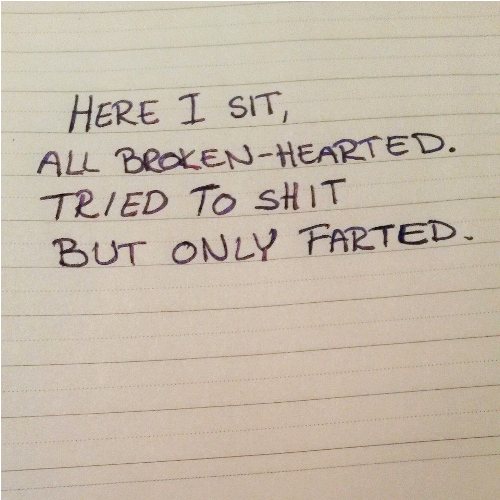 HERE I SIT,
ALL BROKEN-HEARTED.
TRIED TO SHIT
BUT ONLY FARTED.